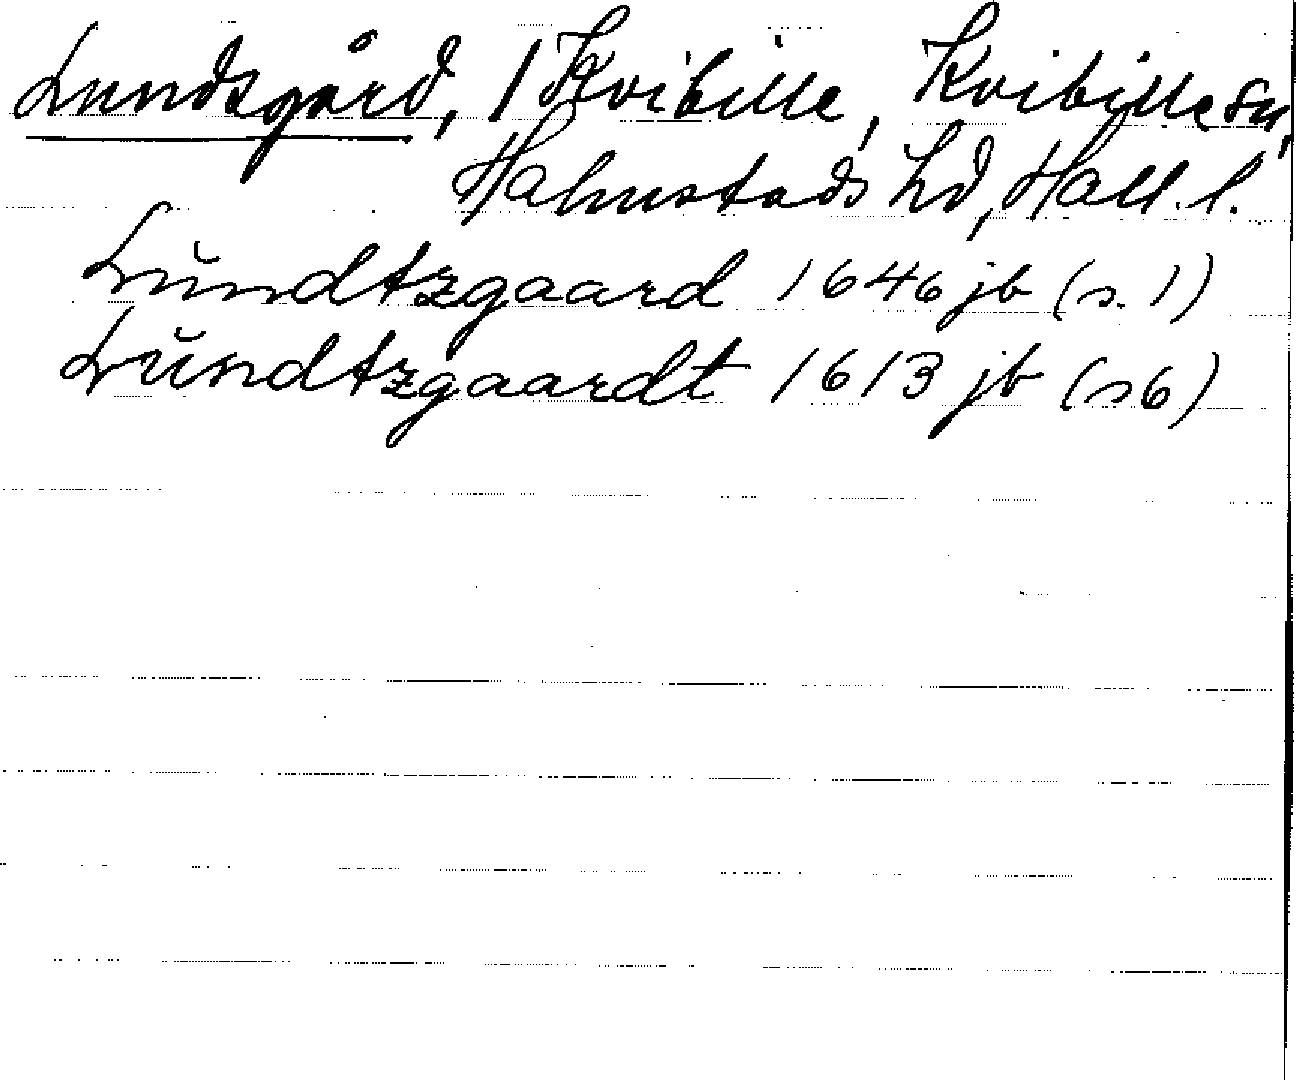 Lundsgård, 1 Kvibille, Kvibille sn,
Halmstads hd, Hall. l.
Lŭndtzgaard 1646 jb (s. 1)
Lŭndtzgaardt 1613 jb (s 6)